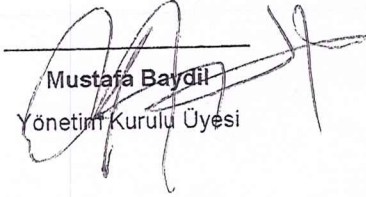 Mustafa Baydil
Yönetim Kurulu Üyesi